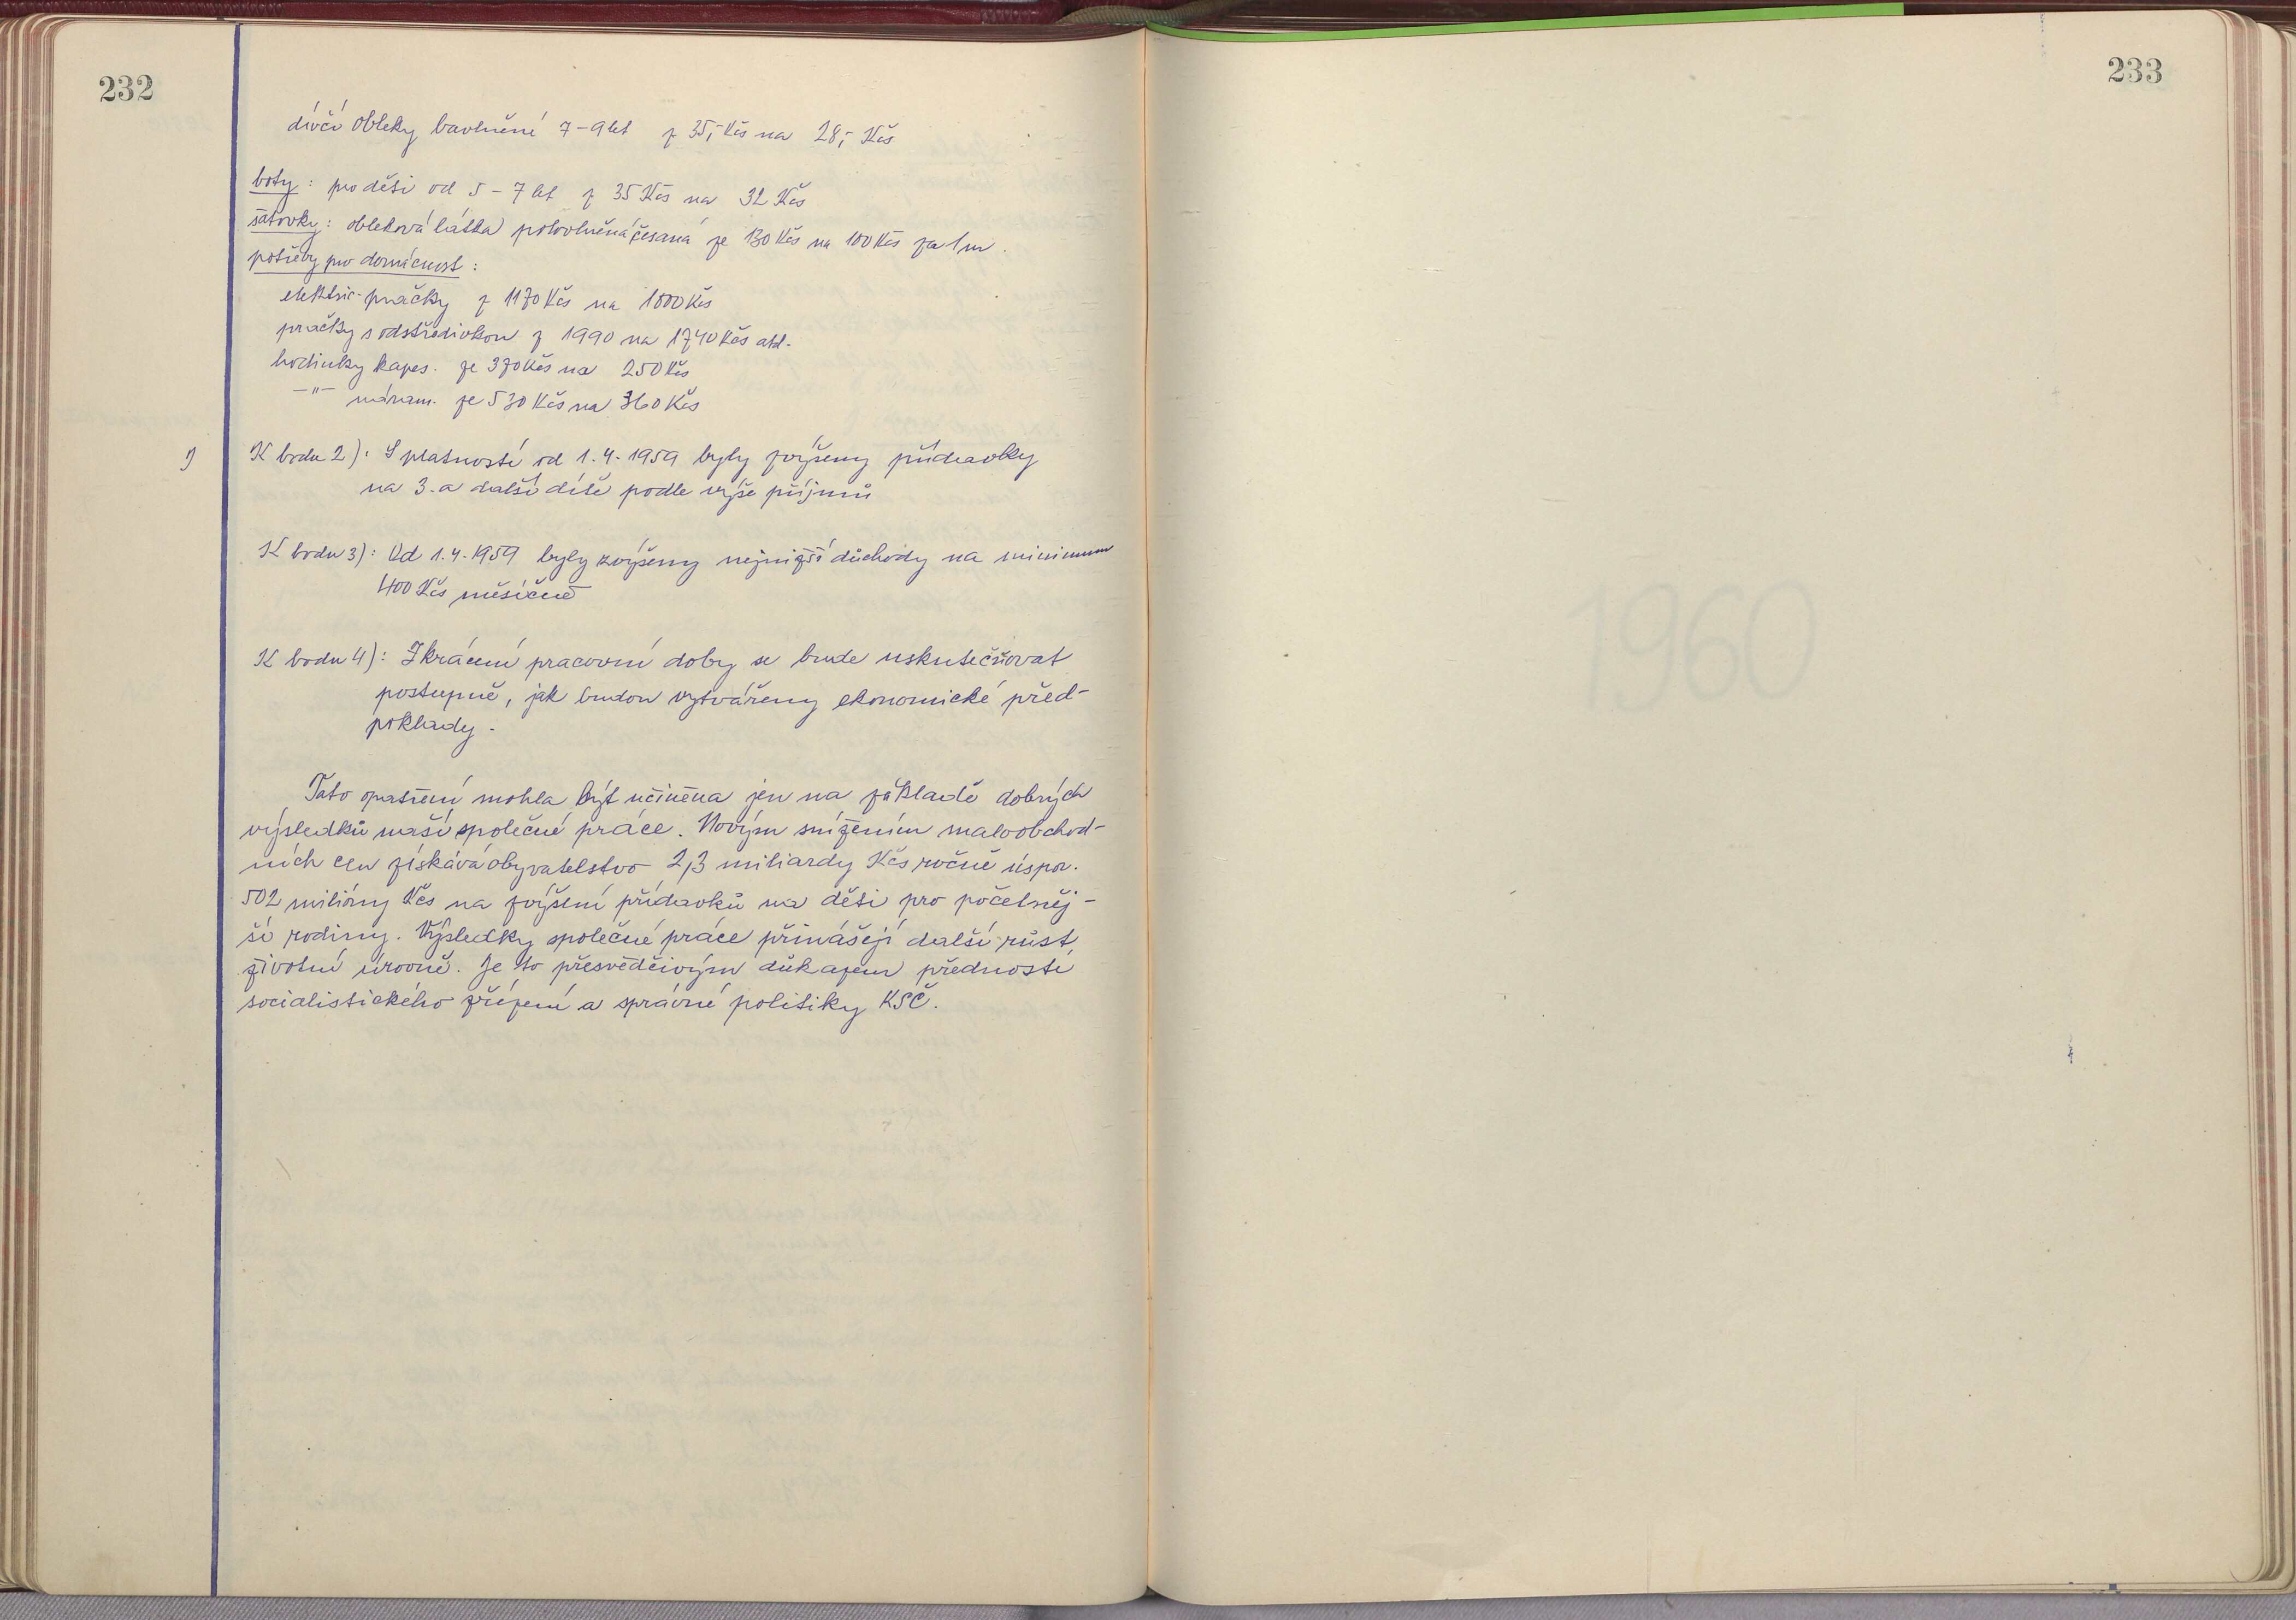 232
dívčí obleky bavlněné 7-9 let z 35,- Kčs na 28,- Kčs
boty: pro děti od 5-7 let z 35 Kčs na 32 Kčs
šatovky: obleková látka polovlněná česaná ze 130 Kčs na 100 Kčs za 1 m.
potřeby pro domácnost:
elektric. pračky z 1170 Kčs na 1000 Kčs
pračky s odstředivkou z 1990 na 1740 Kčs atd.
hodinky kapes. ze 370 Kčs na 250 Kčs
-"- náram. ze 530 Kčs na 360 Kčs
K bodu 2): S platností od 1.4.1959 byly zvýšeny přídavky
na 3. a další dítě podle výše příjmů
K bodu 3): Od 1.4.1959 byly zvýšeny nejnižší důchody na minimum
400 Kčs měsíčně
K bodu 4): Zkrácení pracovní doby se bude uskutečňovat
postupně, jak budou vytvářeny ekonomické před-
poklady.
Tato opatření mohla být učiněna jen na základě dobrých
výsledků naší společné práce. Novým snížením maloobchod-
ních cen získává obyvatelstvo 2,3 miliardy Kčs ročně úspor.
502 milióny Kčs na zvýšení přídavků na děti pro početněj-
ší rodiny. Výsledky společné práce přinášejí další růst
životní úrovně. Je to přesvědčivým důkazem předností
socialistického zřízení a správné politiky KSČ.
233
1960